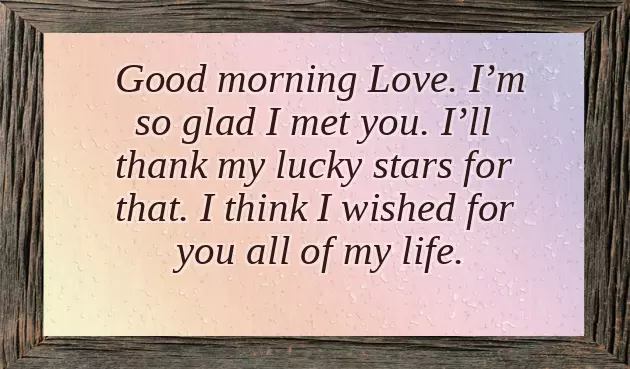 Good morning Love. I’m
so glad I met you. I’ll
thank my lucky stars for
that. I think I wished for
you all of my life.